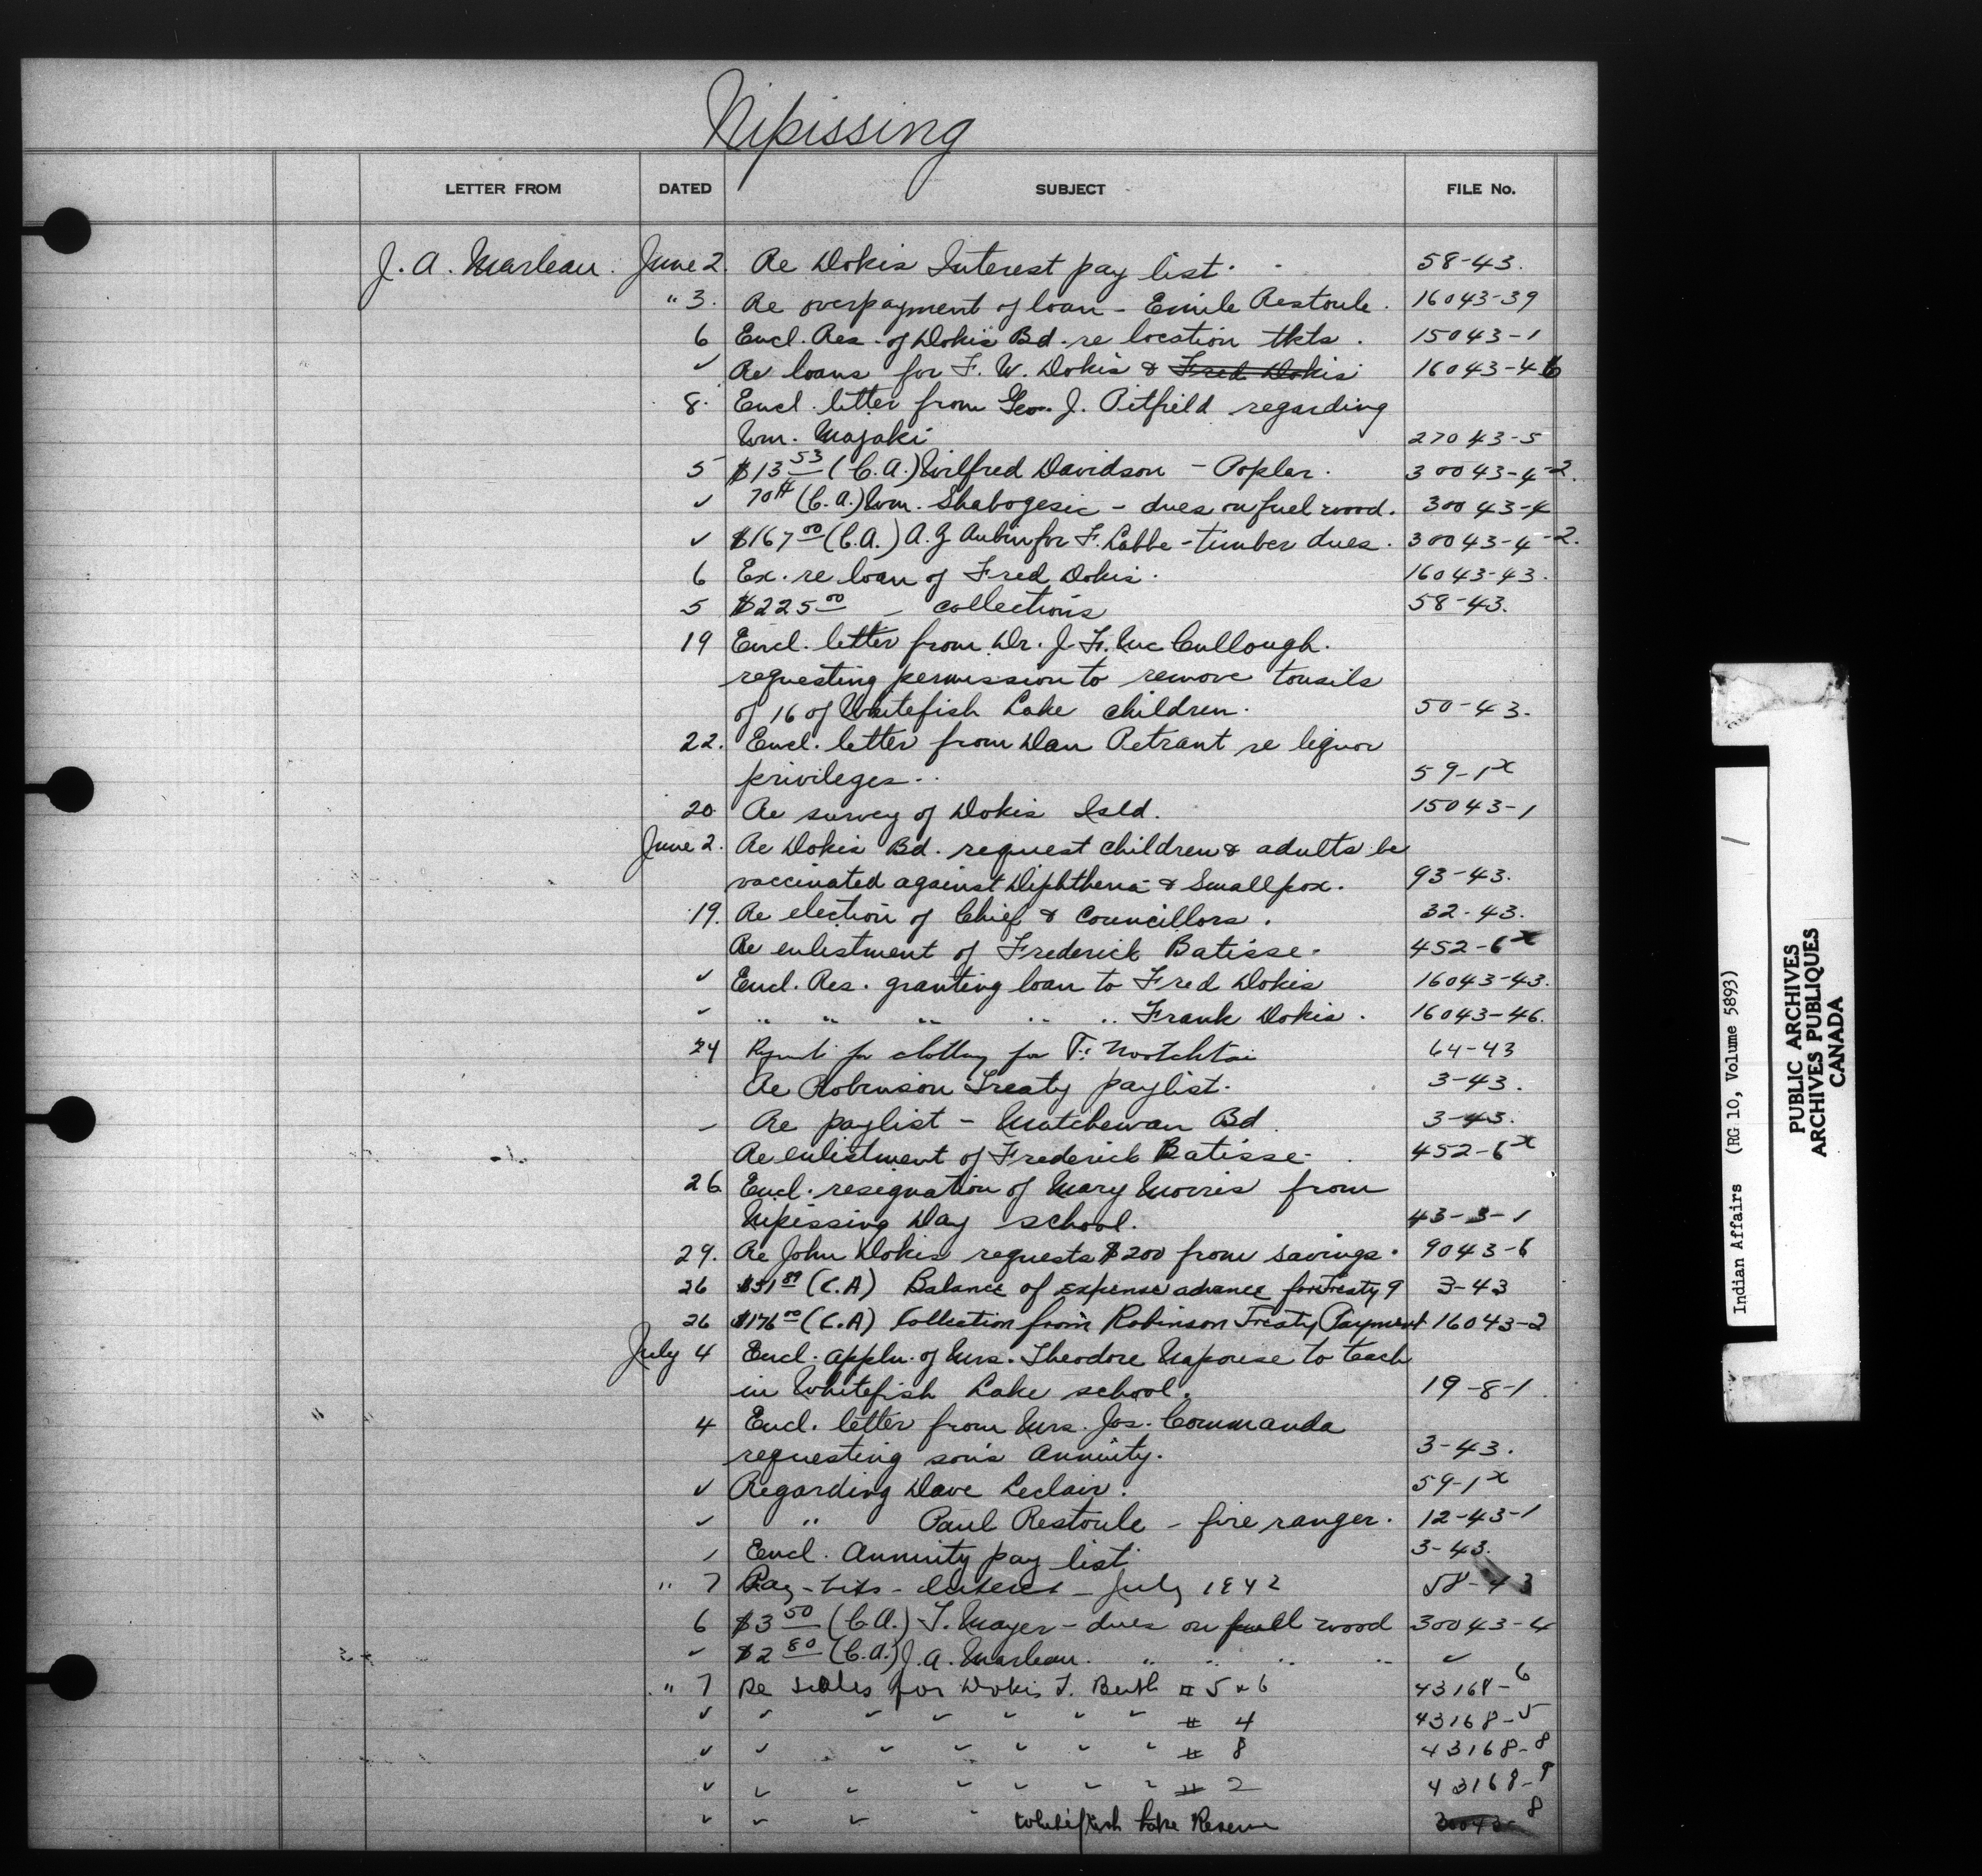 Nipissing
LETTER FROM DATED SUBJECT FILE No.
J. A. Marleau. June 2. Re Dokis Interest pay list. 58-43.
" 3. Re overpayment of loan - Emile Restoule. 16043-39
6 Encl. Res. of Dokis Bd. re location tkts. 15043-1
✓ Re loans for F. W. Dokis & Fred Dokis 16043-46
8. Encl. letter from Geo. J. Pitfield regarding
Wm. Majaki 27043-5
5 $13 53 (C.A.) Wilfred Davidson - Poplar. 30043-4-2.
✓ 70¢ (C.A.) Wm. Shabogesic - dues on fuel wood. 30043-4
✓ $167 00 (C.A.) A. G Aubin for F. Labbe - timber dues. 30043-4-2.
6 Ex. re loan of Fred Dokis. 16043-43.
5 $225 00 - collections 58-43.
19 Encl. letter from Dr. J. F. McCullough.
requesting permission to remove tonsils
of 16 of Whitefish Lake children. 50-43.
22. Encl. letter from Dan Retrant re liquor
privileges. 59-1x
20 Re survey of Dokis Isld. 15043-1
June 2. Re Dokis Bd. request children & adults be
vaccinated against Diphtheria & Smallpox. 93-43.
19. Re election of Chief & Councillors. 32-43.
Re enlistment of Frederick Batisse. 452-6x
✓ Encl. Res. granting loan to Fred Dokis 16043-43.
✓ " " " " " Frank Dokis. 16043-46.
24 for clothing for 64-43
Re Robinson Treaty paylist. 3-43.
- Re paylist - Matchewan Bd. 3-43.
Re enlistment of Frederick Batisse. 452-6x
26 Encl. resignation of Mary Morris from
Nipissing Day school. 43-3-1
29. Re John Dokis requests $200 from savings. 9043-6
26 $31 89 (C.A) Balance of expense advance for Treaty 9 3-43
26 $176 00 (C.A) Collection from Robinson Treaty Payment 16043-2
July 4 Encl. appln. of Mrs. Theodore Napouse to teach
in Whitefish Lake school. 19-8-1
4 Encl. letter from Mrs. Jos. Commanda
requesting son's Annuity. 3-43.
✓ Regarding Dave Leclair. 59-1x
✓ " Paul Restoule - fire ranger. 12-43-1
✓ Encl. Annuity pay list. 3-43.
" 7 Pay-lists - Interest - July 1942 58-43
6 $3 50 (C.A.) T. Mayer - dues on fuel wood 30043-4
✓ $2 80 (C.A.) J. A. Marleau. " " " " ✓
" 7 Re sales for Dokis T. Berth # 5 & 6 43168-6
✓ ✓ ✓ ✓ ✓ ✓ ✓ # 4 43168-5
✓ ✓ ✓ ✓ ✓ ✓ ✓ # 8 43168-8
✓ ✓ ✓ ✓ ✓ ✓ ✓ # 2 43168-9
✓ ✓ ✓ " Whitefish Lake Reserve 30043-8
Indian Affairs (RG 10, Volume 5893)
PUBLIC ARCHIVES
ARCHIVES PUBLIQUES
CANADA